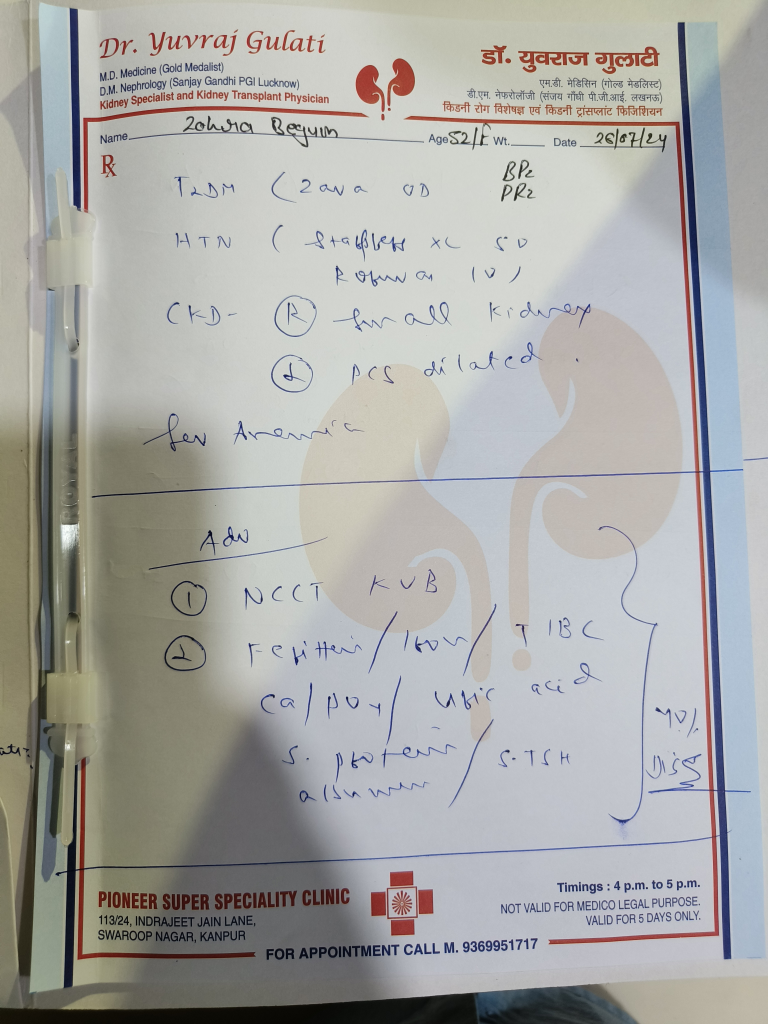 Dr. Yuvraj Gulati
M.D. Medicine (Gold Medalist)
D.M. Nephrology (Sanjay Gandhi PGI Lucknow)
Kidney Specialist and Kidney Transplant Physician
डॉ. युवराज गुलाटी
एम.डी. मेडिसिन (गोल्ड मेडलिस्ट)
डी.एम. नेफरोलॉजी (संजय गाँधी पी.जी.आई. लखनऊ)
किडनी रोग विशेषज्ञ एवं किडनी ट्रांसप्लांट फिजिशियन
Name Zohra Begum Age 52/F Wt. Date 26/07/24
Rx
BP
PR
T2DM ( Zava OD
HTN ( XL 50
10 )
CKD- (R) Small Kidney
(L) PCS dilated.
Sev Anemia
Adv
(1) NCCT KUB
(2) Ferittin / Iron / TIBC
Ca / PO4 / Uric acid
S. protein / S.TSH
albumin
40%
Disc
PIONEER SUPER SPECIALITY CLINIC
113/24, INDRAJEET JAIN LANE,
SWAROOP NAGAR, KANPUR
Timings : 4 p.m. to 5 p.m.
NOT VALID FOR MEDICO LEGAL PURPOSE.
VALID FOR 5 DAYS ONLY.
FOR APPOINTMENT CALL M. 9369951717